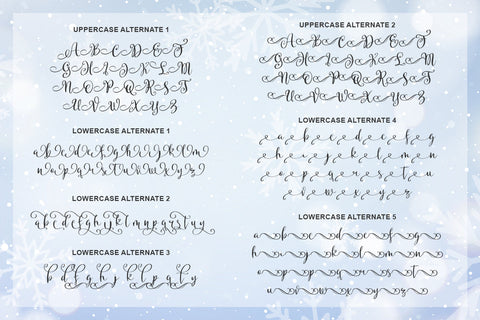 UPPERCASE ALTERNATE 1
A B C D E F
G H I J K L M
N O P Q R S T
U V W X Y Z
LOWERCASE ALTERNATE 1
a b c d e f g h i j k l m
n o p q r s t u v w x y z
LOWERCASE ALTERNATE 2
a b c d e f g h i j k l m n p q r s t u y
LOWERCASE ALTERNATE 3
b d f g h j k l p q f g y
UPPERCASE ALTERNATE 2
A B C D E F
G H I J K L M
N O P Q R S T
U V W X Y Z
LOWERCASE ALTERNATE 4
a b c d e f g
h i j k l m n
o p q r s t u
v w x y z
LOWERCASE ALTERNATE 5
a b c d e f g
h i j k l m n
o p q r s t
u v w x y z